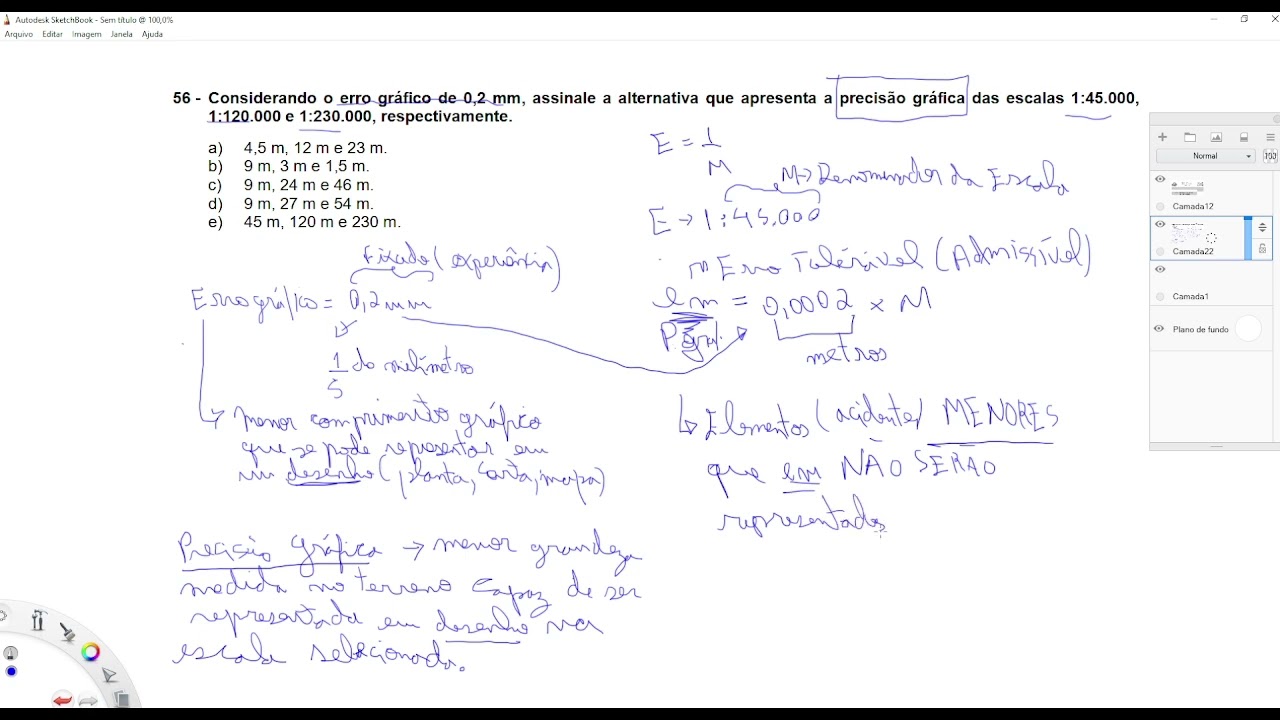 Autodesk SketchBook - Sem título @ 100,0%
Arquivo Editar Imagem Janela Ajuda
56 - Considerando o erro gráfico de 0,2 mm, assinale a alternativa que apresenta a precisão gráfica das escalas 1:45.000,
1:120.000 e 1:230.000, respectivamente.
a) 4,5 m, 12 m e 23 m.
b) 9 m, 3 m e 1,5 m.
c) 9 m, 24 m e 46 m.
d) 9 m, 27 m e 54 m.
e) 45 m, 120 m e 230 m.
E = 1/M
M → Denominador da Escala
E → 1:45.000
Fixado (experiência)
Erro gráfico = 0,2 mm
1/5 do milímetro
↳ menor comprimento gráfico
que se pode representar em
um desenho (planta, carta, mapa)
Precisão Gráfica → menor grandeza
medida no terreno capaz de ser
representada em desenho na
escala selecionada.
Erro Tolerável (Admissível)
em = 0,0002 × M
P. graf.
metros
↳ Elementos (acidente) MENORES
que em NÃO SERÃO
representados
Normal
100
Camada12
Camada22
Camada1
Plano de fundo